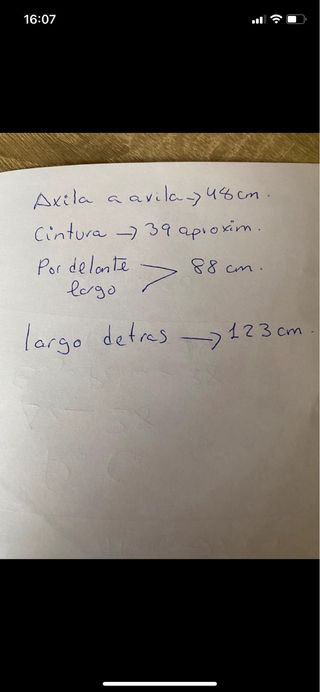 16:07
Axila a axila → 48 cm.
Cintura → 39 aproxim.
Por delante
largo > 88 cm.
largo detras → 123 cm.